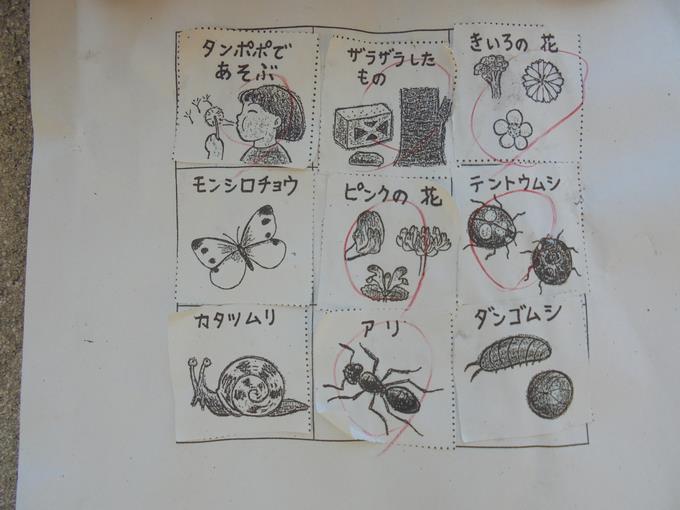 タンポポで
あそぶ
ザラザラした
もの
きいろの 花
モンシロチョウ
ピンクの 花
テントウムシ
カタツムリ
アリ
ダンゴムシ